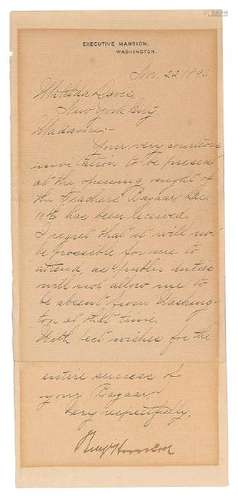 EXECUTIVE MANSION,
WASHINGTON.
Nov. 22 189
New York City
Madam:-
Your very courteous
invitation to be present
at the opening night of
the Teachers Bazaar Dec.
10th has been received.
I regret that it will not
be possible for me to
attend, as public duties
will not allow me to
be absent from Washing-
ton at that time.
With best wishes for the
entire success of
your Bazaar,
Very respectfully,
Benj Harrison